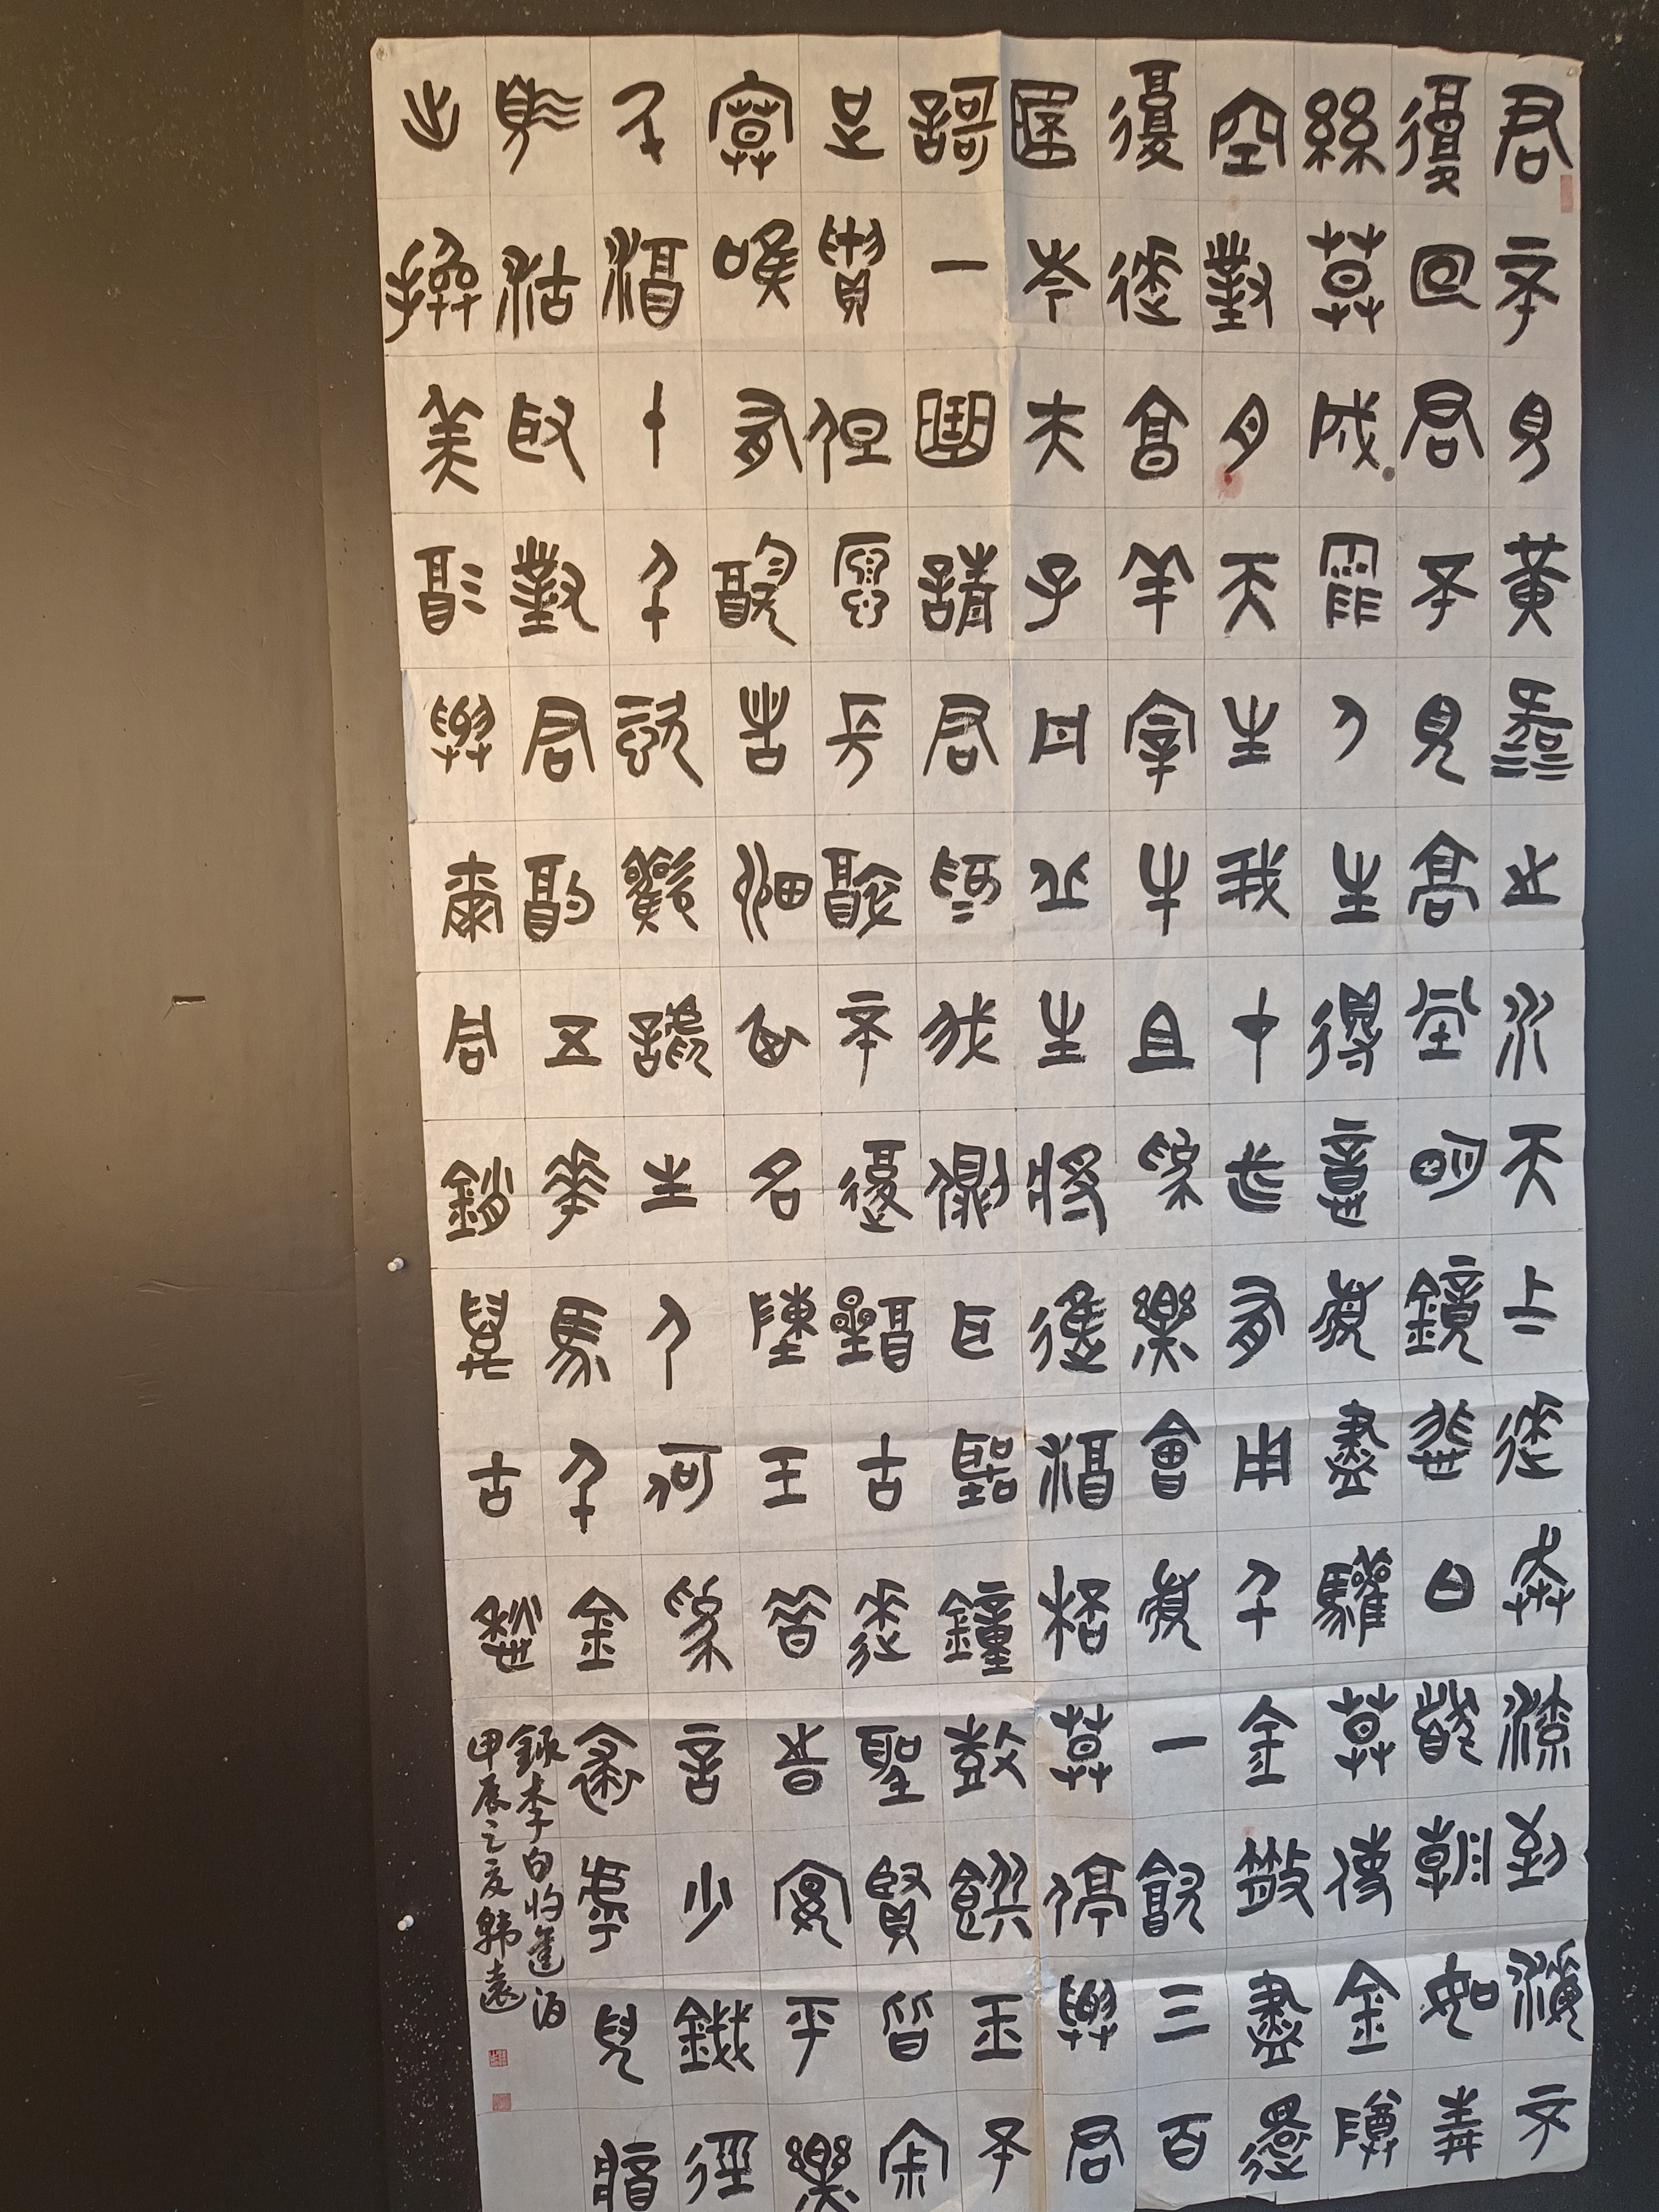 君不見黃河之水天上來奔流到海不
復回君不見高堂明鏡悲白髮朝如青
絲暮成雪人生得意須盡歡莫使金樽
空對月天生我才必有用千金散盡還
復來烹羊宰牛且為樂會須一飲三百
杯岑夫子丹丘生將進酒杯莫停與君
歌一曲請君為我傾耳聽鐘鼓饌玉不
足貴但願長醉不復醒古來聖賢皆寂
寞唯有飲者留其名陳王昔時宴平樂
斗酒十千恣歡謔主人何為言少錢徑
須沽取對君酌五花馬千金裘呼兒將
出換美酒與爾同銷萬古愁
錄李白將進酒
甲辰之夏韓遠